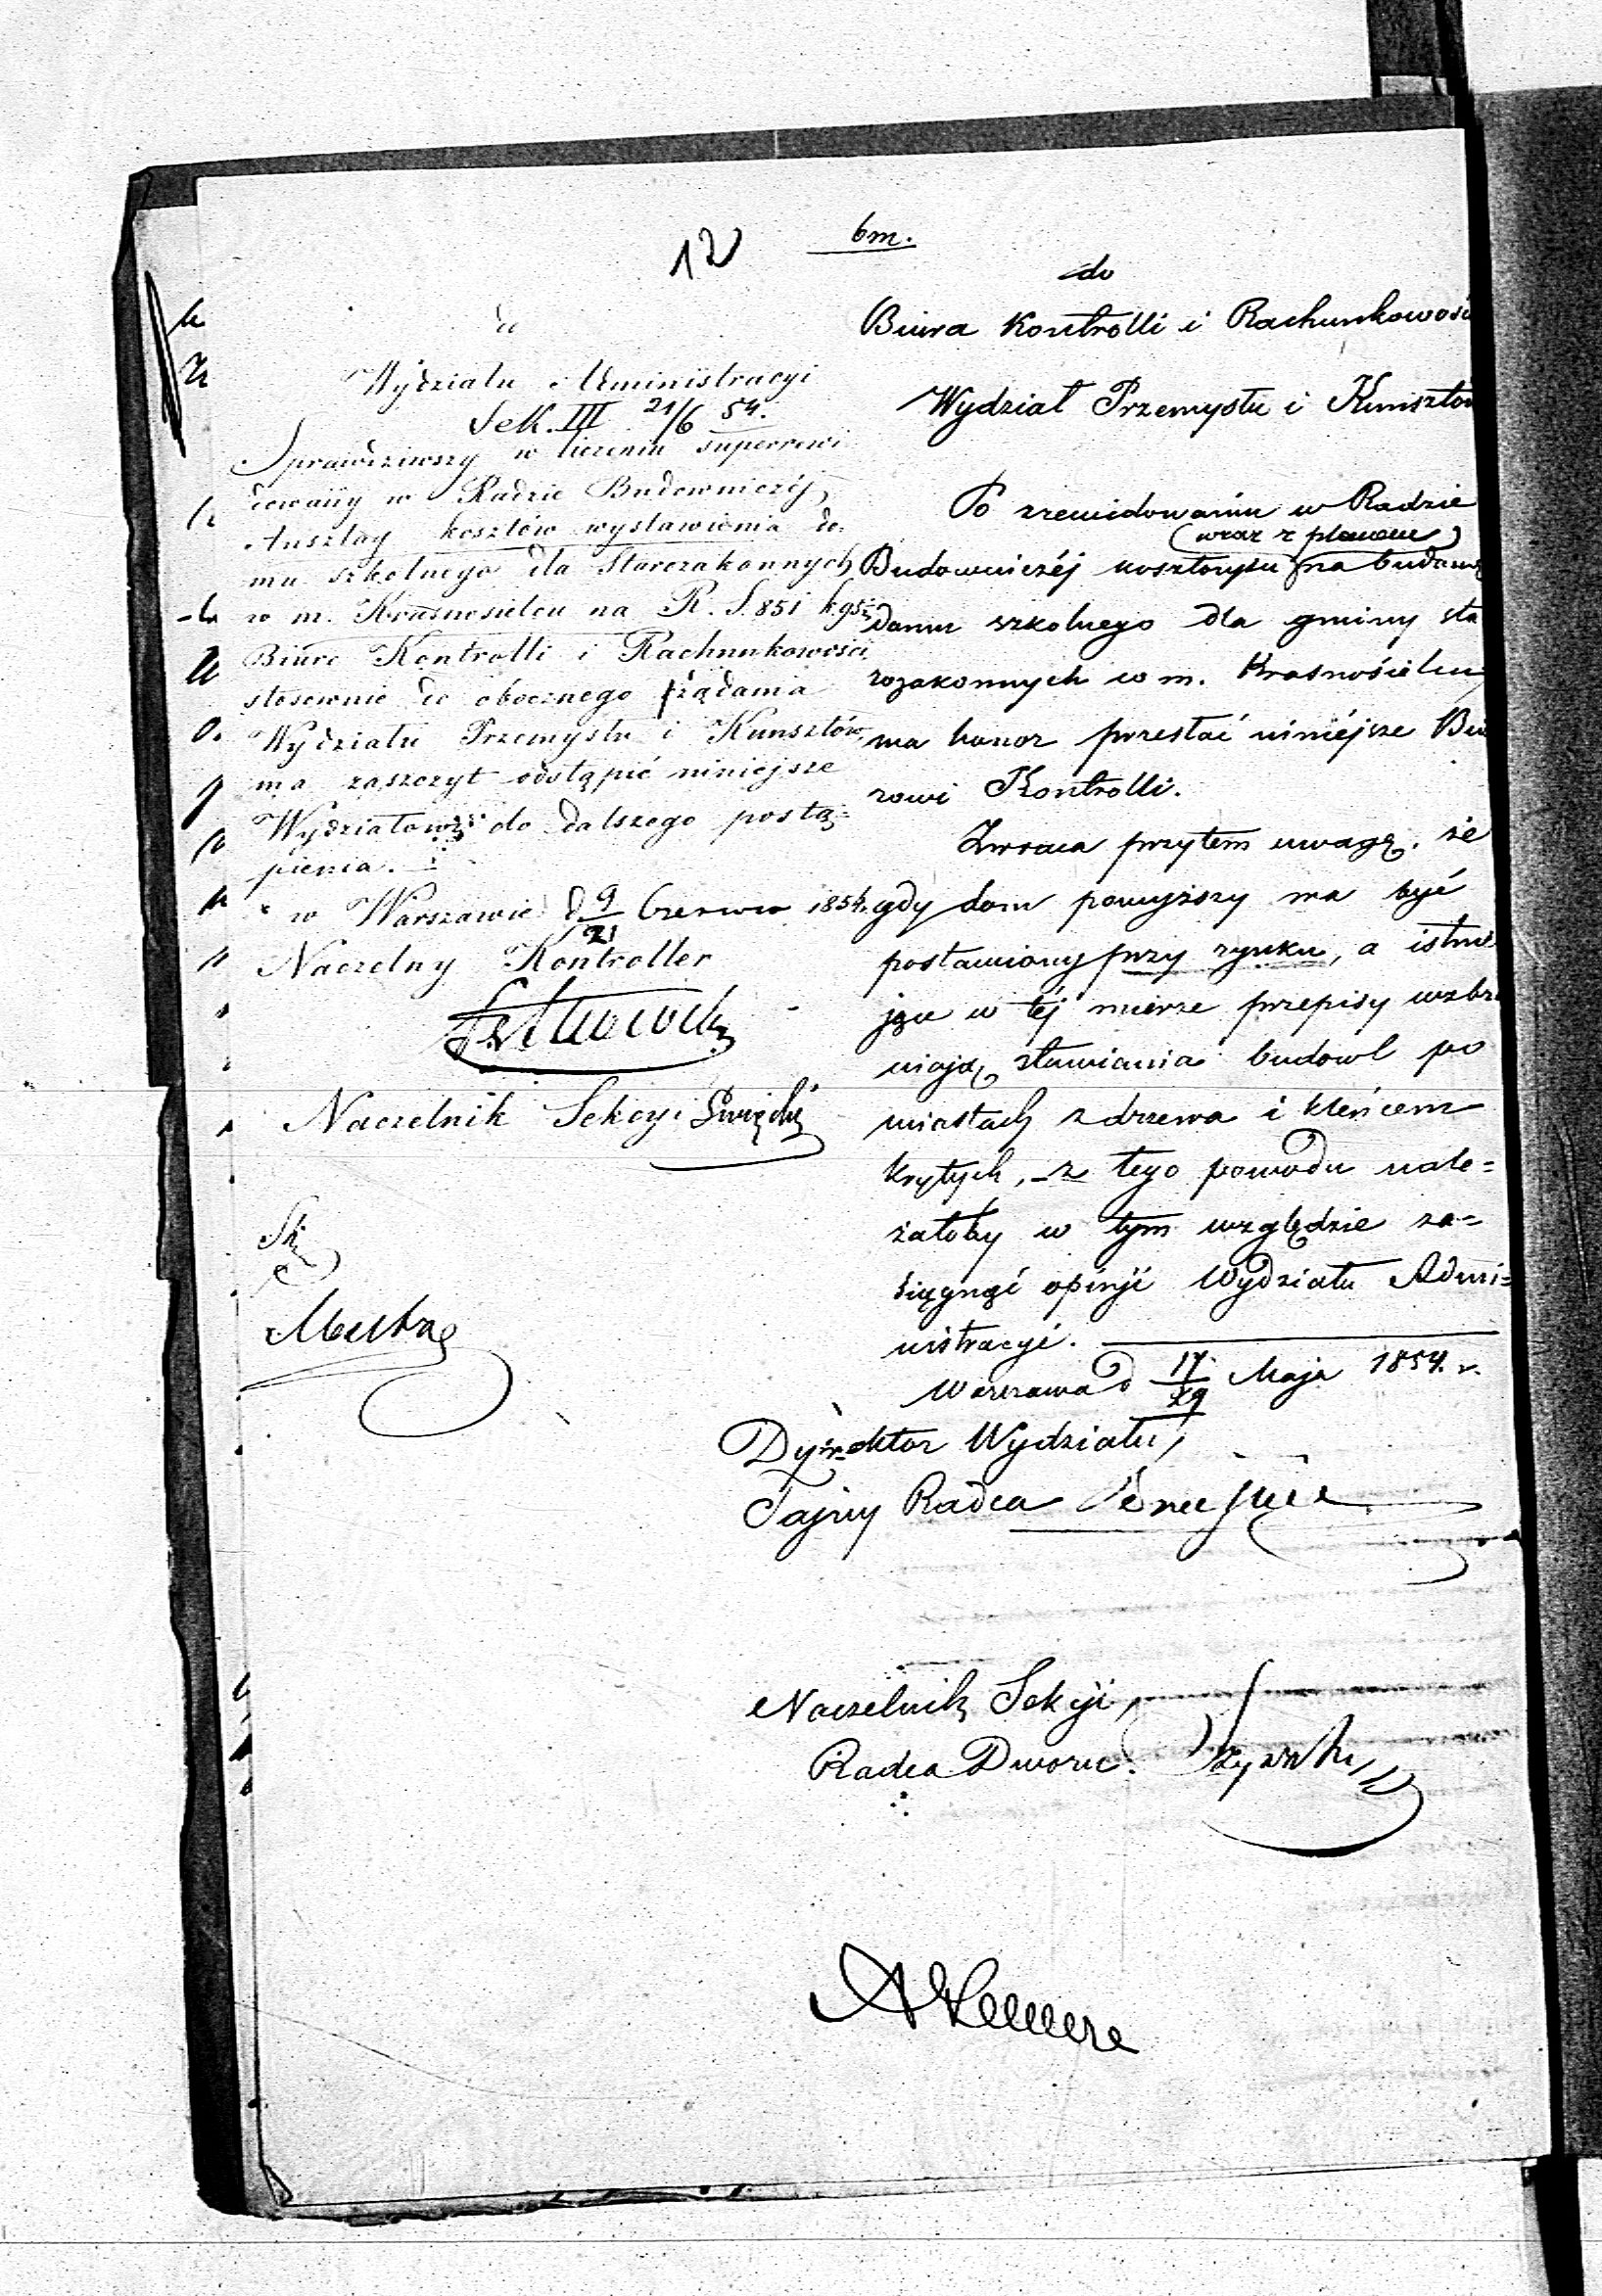 12
bm.
do
Biura Kontrolli i Rachunkowości
Wydział Przemysłu i Kunsztów
Po zrewidowaniu w Radzie
(wraz z planem)
Budowniczéj kosztorysu na budowę
domu szkolnego dla gminy sta
rozakonnych w m. Krasnosielcu
ma honor przesłać niniéjsze Biu
rowi Kontrolli.
Zwraca przytem uwagę, że
gdy dom powyższy ma być
postawiony przy rynku, a istnie
jące w téj mierze przepisy wzbra
niają stawiania budowl po
miastach z drzewa i kleńcem
krytych, z tego powodu nale=
żałoby w tym względzie za=
sięgnąć opinji Wydziału Admi=
nistracyi.
Warszawa d 17/29 Maja 1854. r.
Dyrektor Wydziału,
Tajny Radca
Naczelnik Sekcji,
Radca Dworu
do
Wydziału Administracyi
Sek. III 21/6 54.
Sprawdziwszy w liczeniu superrewi
dowany w Radzie Budowniczéj
Anszlag kosztów wystawienia do=
mu szkolnego dla Starozakonnych
w m. Krasnosielcu na R. S. 851 k 95½
Biuro Kontrolli i Rachunkowości
stosownie do obocznego żądania
Wydziału Przemysłu i Kunsztów
ma zaszczyt odstąpić niniejsze
Wydziałowi do dalszego postą=
pienia.
w Warszawie d 9/21 Czerwca 1854.
Naczelny Kontroller
Naczelnik Sekcyi